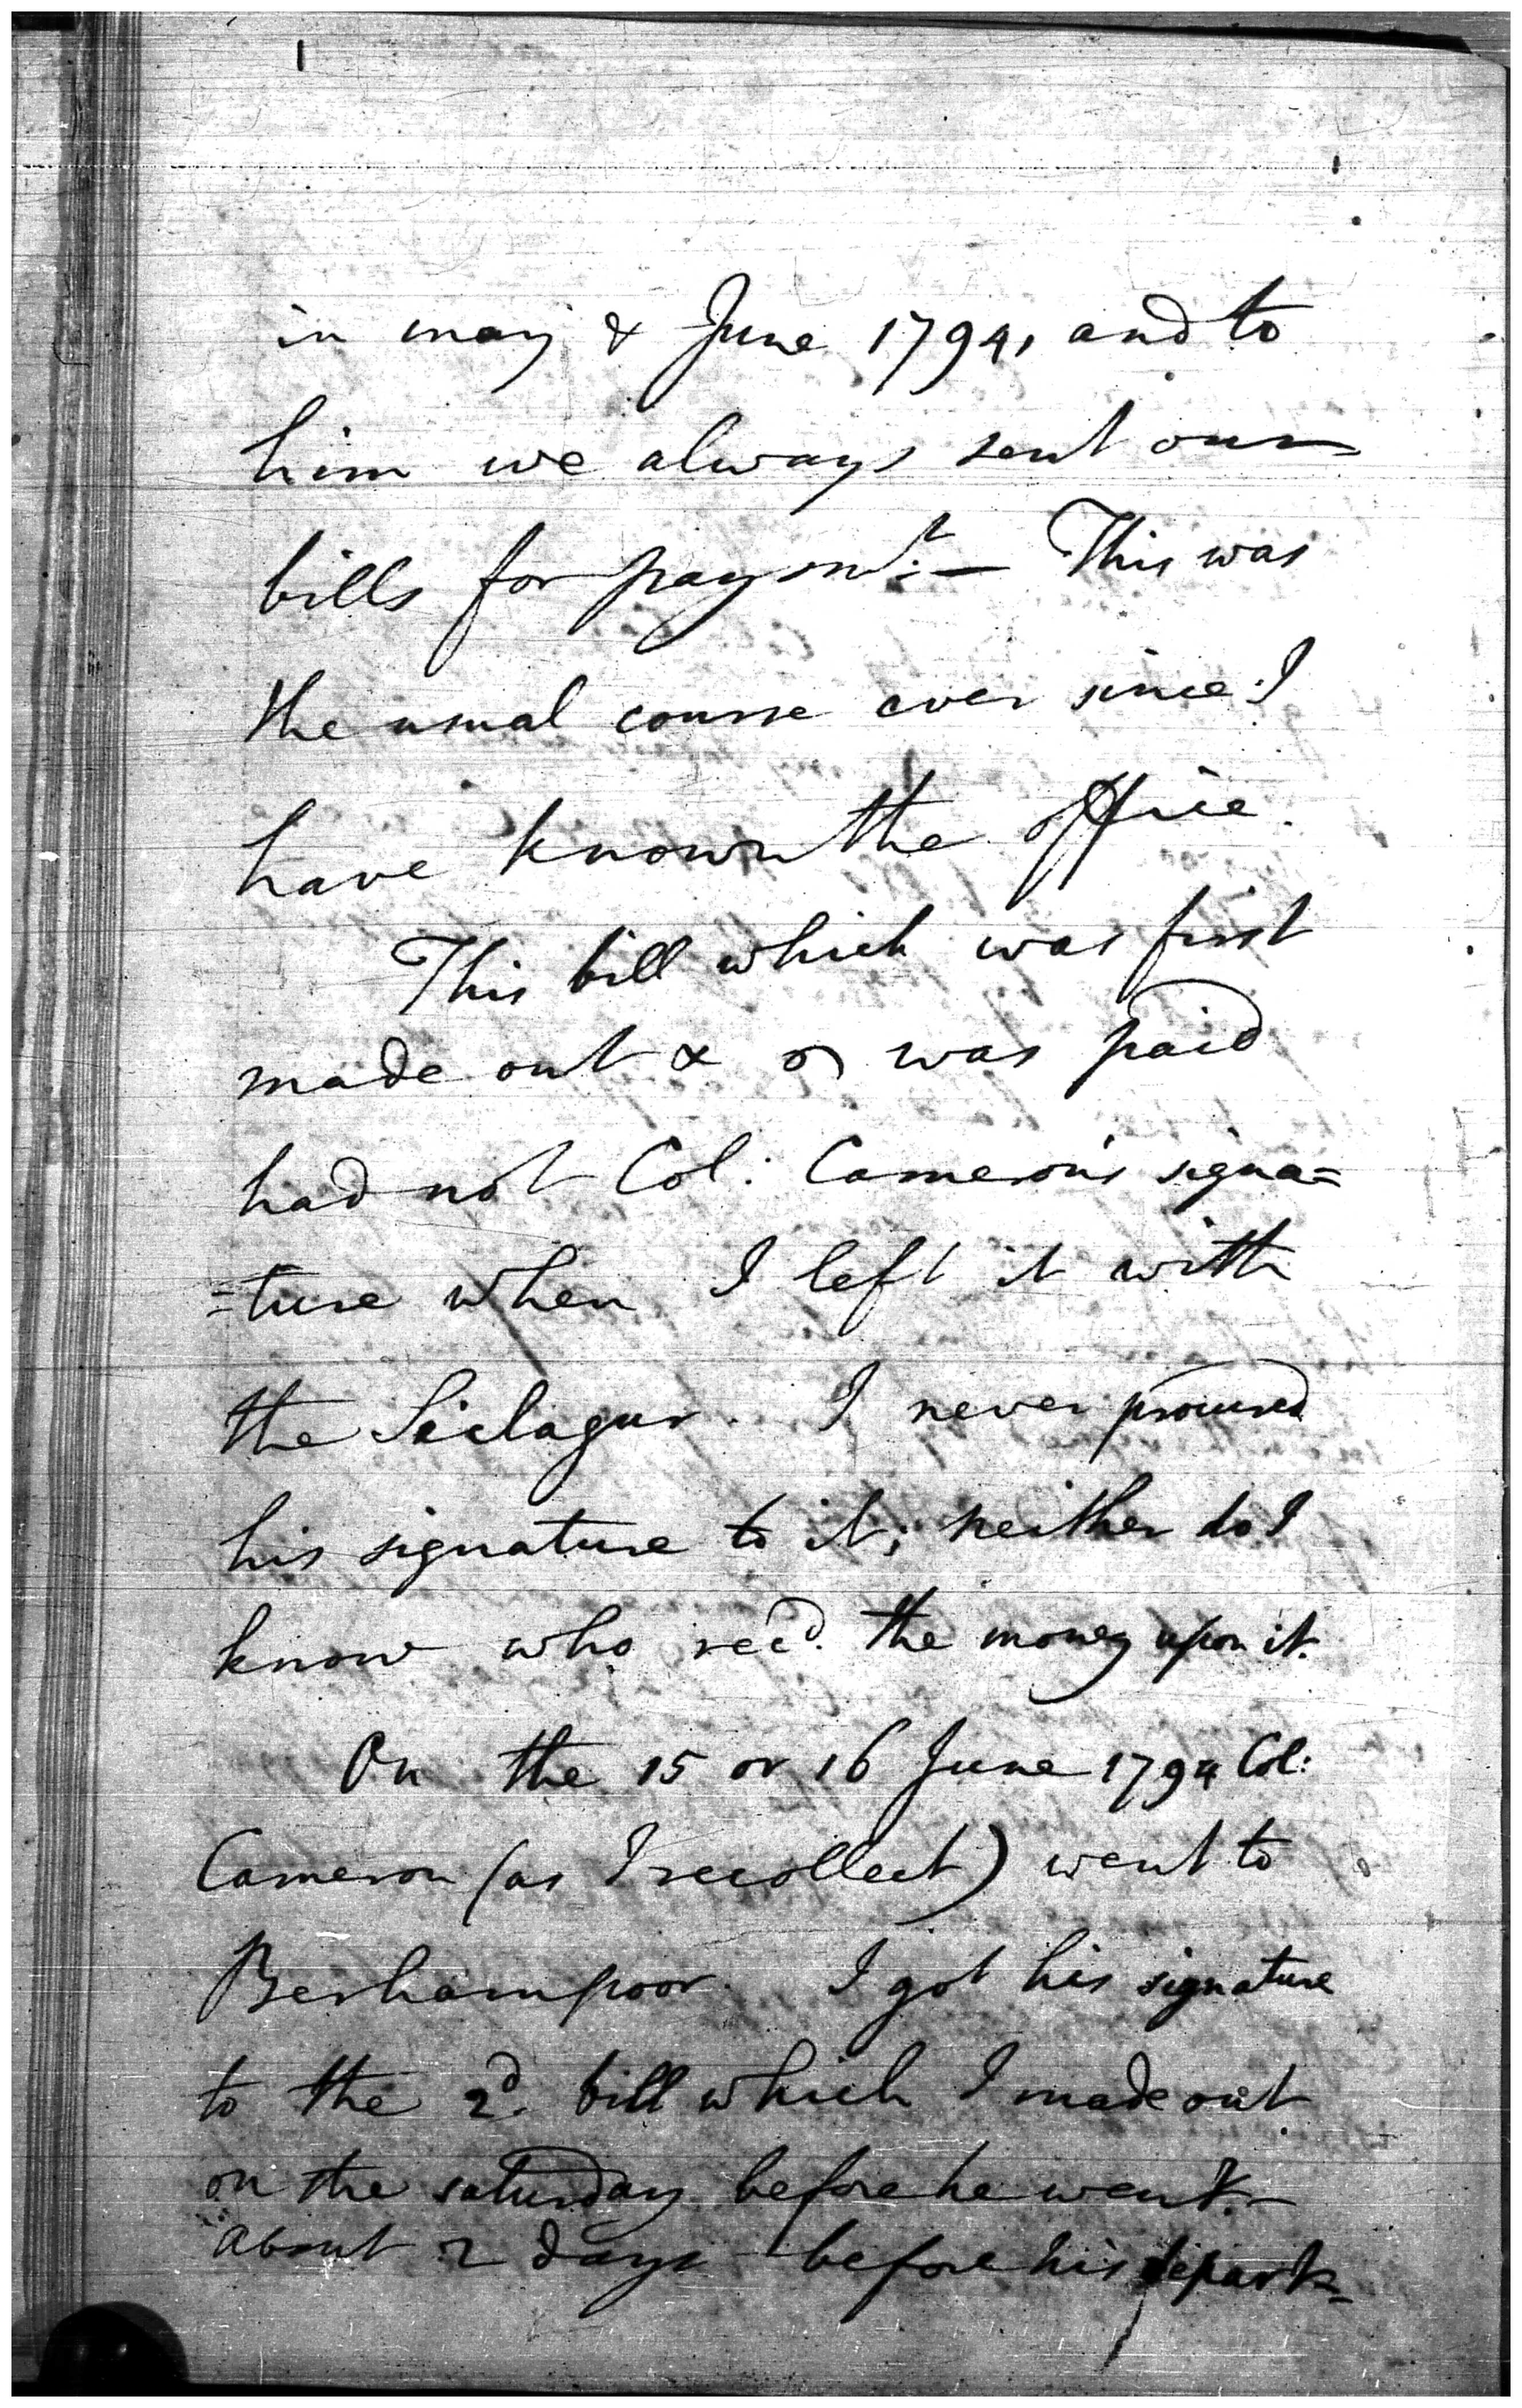 in may & June 1794, and to
him we always sent our
bills for paymt:— This was
the usual course ever since I
have known the office.
This bill which was first
made out & was paid
had not Col: Cameron's signa=
=ture when I left it with
the I never procured
his signature to it; neither do I
know who recd. the money upon it.
On the 15 or 16 June 1794 Col:
Cameron (as I recollect) went to
Berhampoor. I got his signature
to the 2d. bill which I made out
on the saturday before he went.—
about 2 days before his depart=